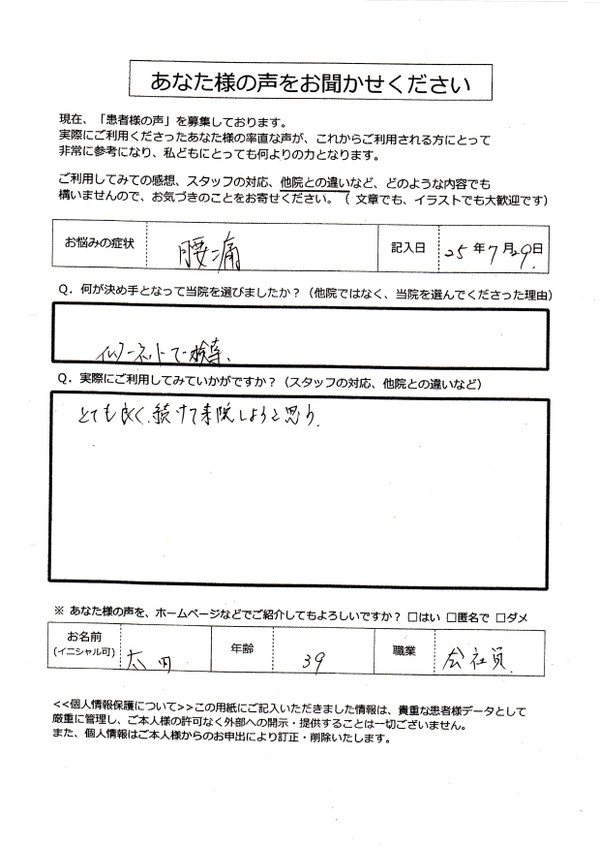 あなた様の声をお聞かせください
現在、「患者様の声」を募集しております。
実際にご利用くださったあなた様の率直な声が、これからご利用される方にとって
非常に参考になり、私どもにとっても何よりの力となります。
ご利用してみての感想、スタッフの対応、他院との違いなど、どのような内容でも
構いませんので、お気づきのことをお寄せください。（ 文章でも、イラストでも大歓迎です）
お悩みの症状 腰痛 記入日 25年7月29日
Q．何が決め手となって当院を選びましたか？（他院ではなく、当院を選んでくださった理由）
インターネットで検索、
Q．実際にご利用してみていかがですか？（スタッフの対応、他院との違いなど）
とても良く、続けて来院しようと思う.
※ あなた様の声を、ホームページなどでご紹介してもよろしいですか？ □はい □匿名で □ダメ
お名前 年齢 39 職業 会社員
(イニシャル可)
<<個人情報保護について>>この用紙にご記入いただきました情報は、貴重な患者様データとして
厳重に管理し、ご本人様の許可なく外部への開示・提供することは一切ございません。
また、個人情報はご本人様からのお申出により訂正・削除いたします。